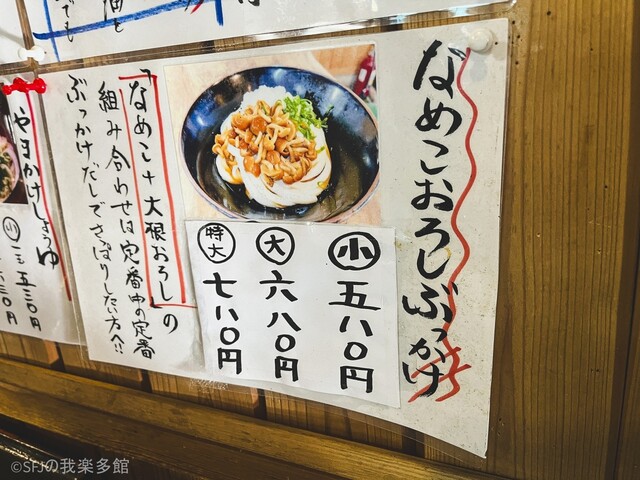 なめこおろしぶっかけ
小 五八〇円
大 六八〇円
特大 七八〇円
「なめこ+大根おろし」の
組み合わせは定番中の定番
ぶっかけ、だしでさっぱりしたい方へ!!
やまかけしょうゆ
小 五三〇円
©SFJの我楽多館